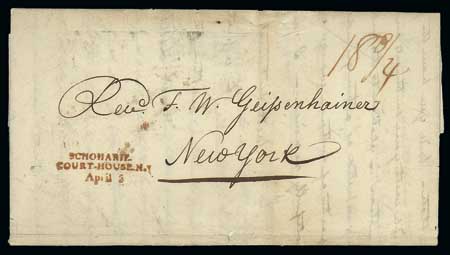 18 3/4
Revd. F. W. Geißenhainer
New York
SCHOHARIE
COURT-HOUSE N.Y
April 3